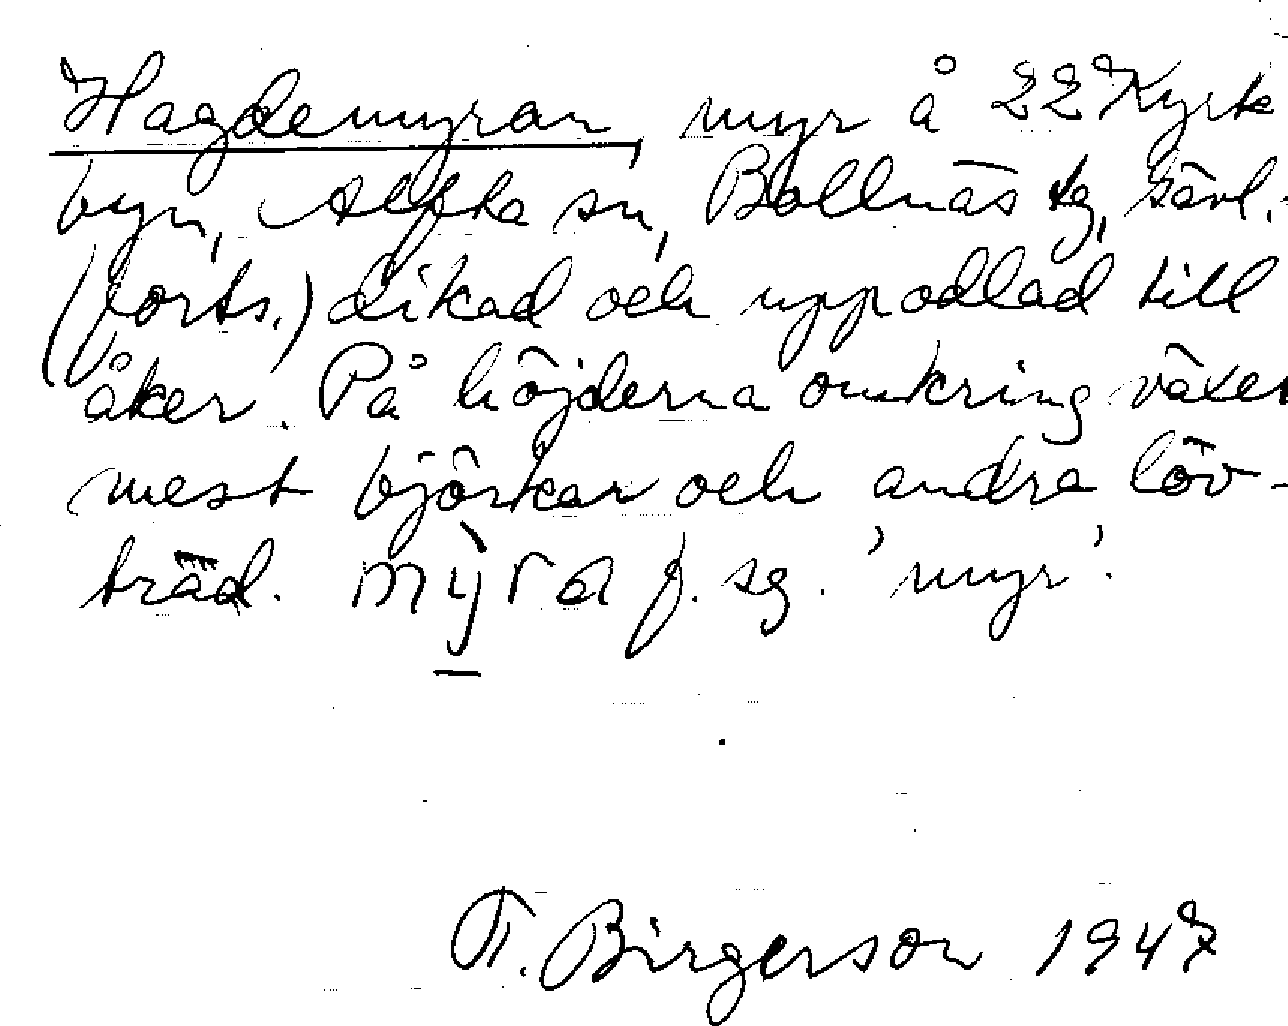 Hagdemyran, myr å 227 Kyrk
byn, Alfta sn, Bollnäs tg, Gävl.
(forts.) dikad och uppodlad till
åker. På höjderna omkring växer
mest björkar och andra löv-
träd. mỳra f. sg. 'myr'.
F. Birgerson 1947